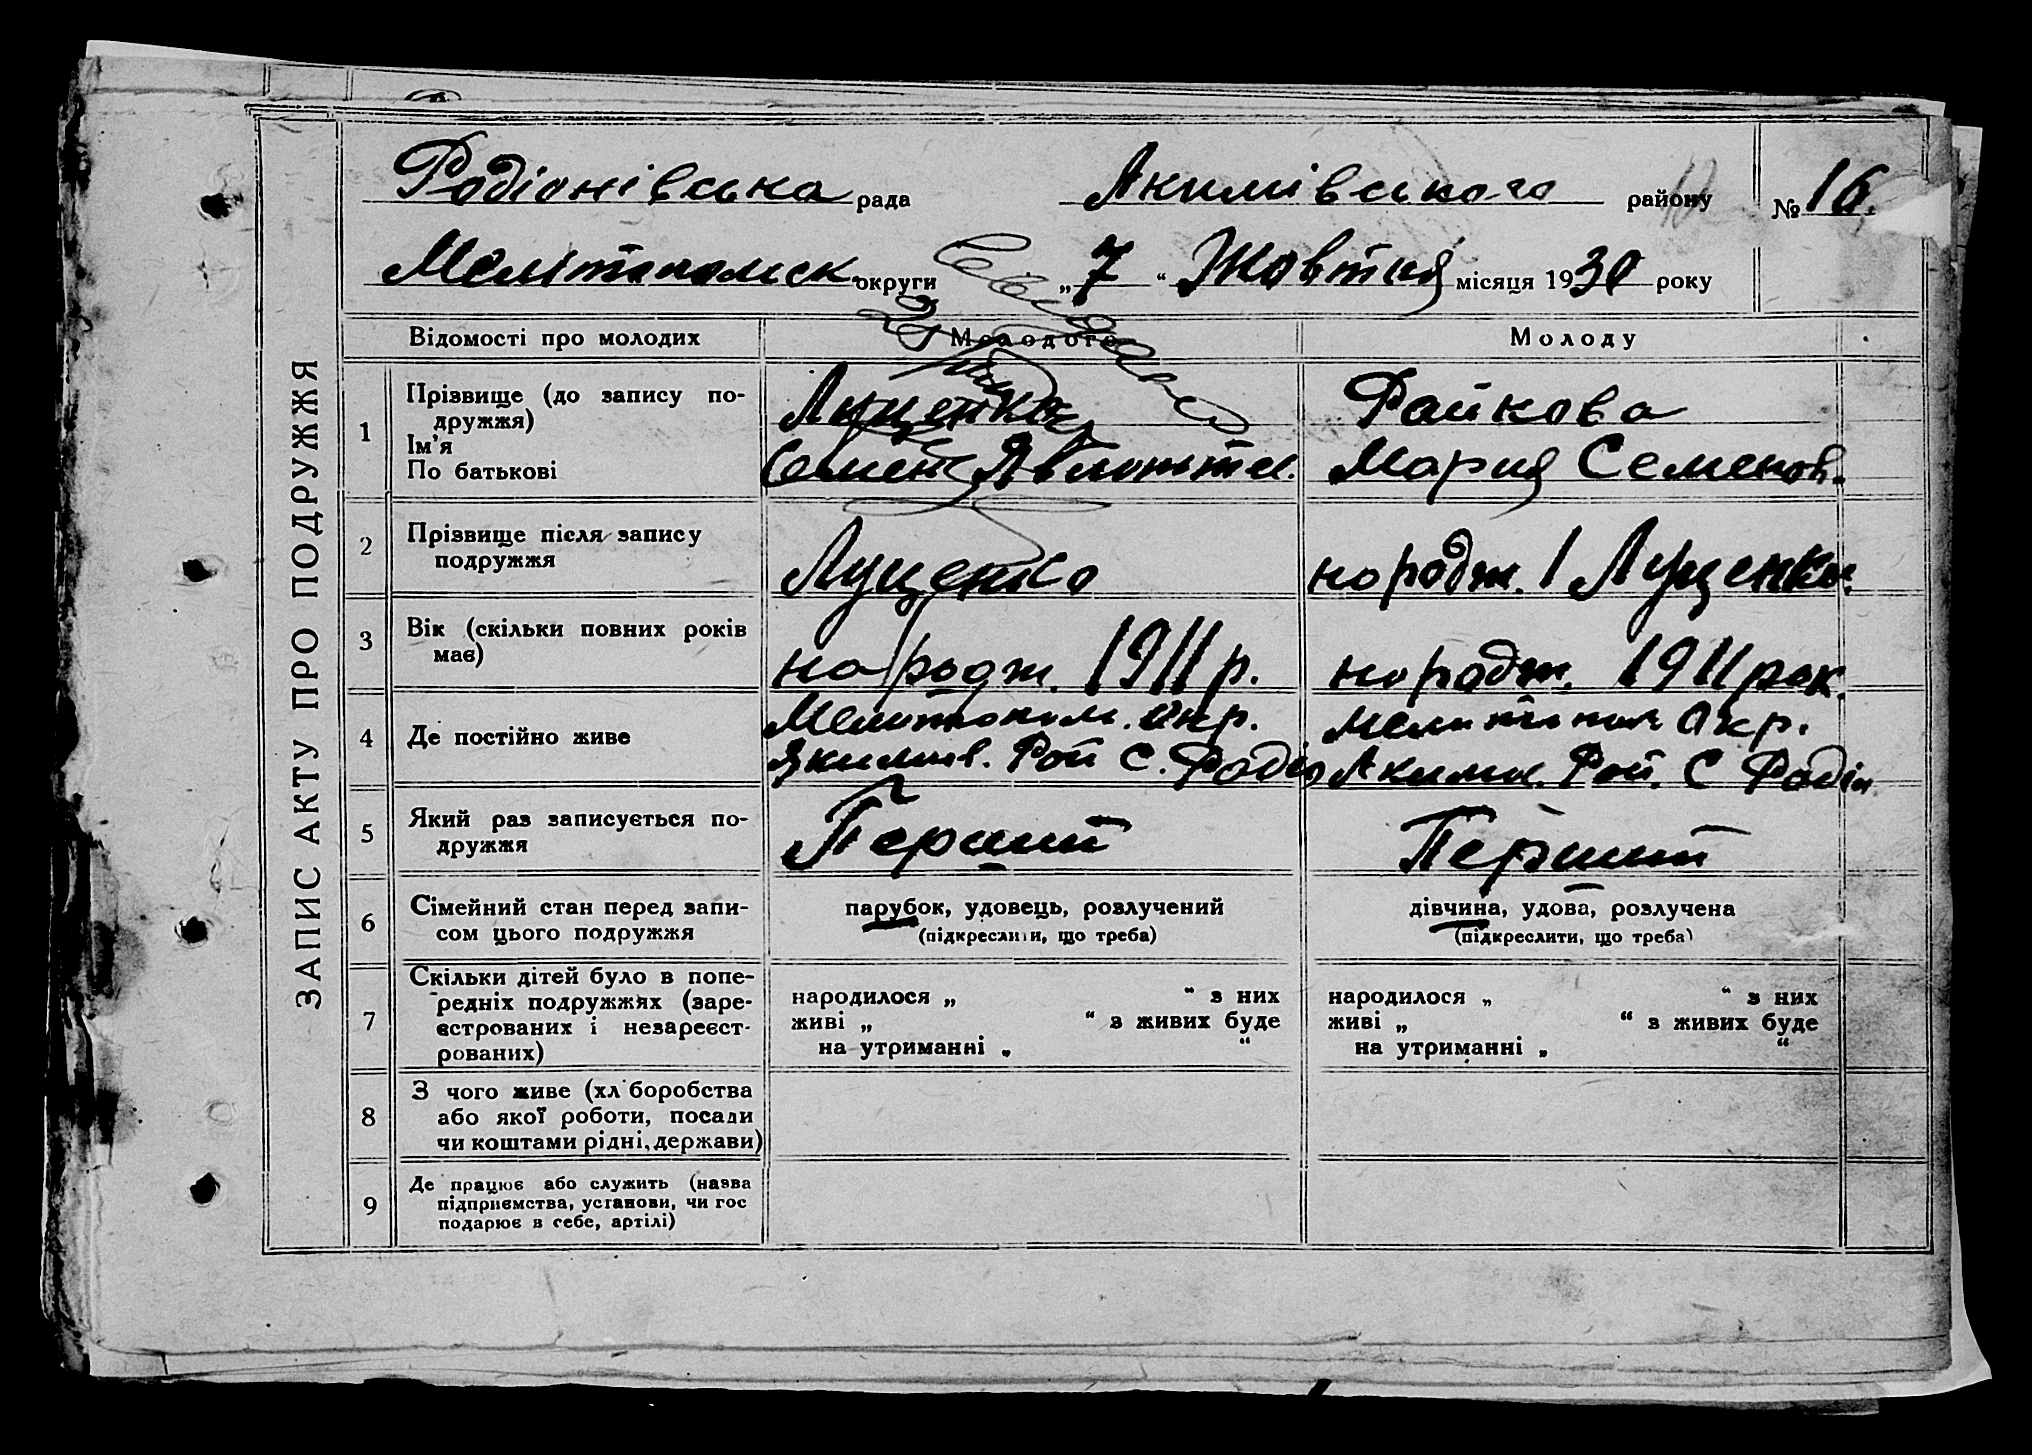 ЗАПИС АКТУ ПРО ПОДРУЖЖЯ
Родіонівська рада Акимівського району № 16.
Мелітопольск округи „7“ Жовтня місяця 1930 року
Відомості про молодих Молодого Молоду
1 Прізвище (до запису по-
дружжя)
Ім'я
По батькові
Луценко
Семен
Файкова
Мария Семенов.
2 Прізвище після запису
подружжя
Луценко
народж. / Луценко.
3 Вік (скільки повних років
має)
народж. 1911 р.
народж. 1911 рок.
4 Де постійно живе
Мелитополь. окр.
Якимів. Рай С. Родіо
Мелитопол окр.
Акими. Рай. С Родін
5 Який раз записується по-
дружжя
Перший
Перший
6 Сімейний стан перед запи-
сом цього подружжя
парубок, удовець, розлучений
(підкреслити, що треба)
дівчина, удова, розлучена
(підкреслити, що треба)
7 Скільки дітей було в попе-
редніх подружжях (заре-
єстрованих і незареєст-
рованих)
народилося „ “ з них
живі „ “ з живих буде
на утриманні „ “
народилося „ “ з них
живі „ “ з живих буде
на утриманні „ “
8 З чого живе (хл боробства
або якої роботи, посади
чи коштами рідні, держави)
9 Де працює або служить (назва
підприємства, установи, чи гос
подарює в себе, артілі)